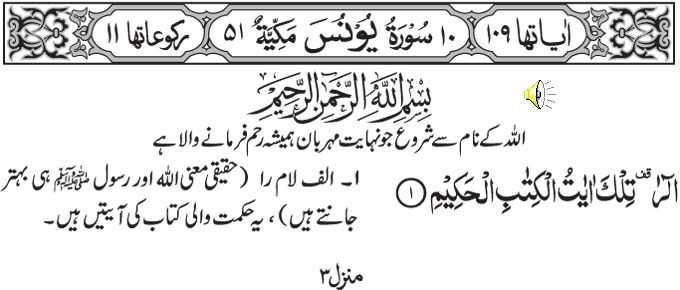 اٰیاتھا ۱۰۹ ۱۰ سُوْرَۃُ یُوْنُسَ مَکِّیَّۃٌ ۵۱ رکوعاتھا ۱۱
بِسْمِ اللّٰهِ الرَّحْمٰنِ الرَّحِیْمِ
اللہ کے نام سے شروع جو نہایت مہربان ہمیشہ رحم فرمانے والا ہے
الٓرٰ ۟ قف تِلْكَ اٰیٰتُ الْكِتٰبِ الْحَكِیْمِ ﴿۱﴾
۱۔ الف لام را (حقیقی معنی اللہ اور رسول ﷺ ہی بہتر
جانتے ہیں)، یہ حکمت والی کتاب کی آیتیں ہیں۔
منزل ۳